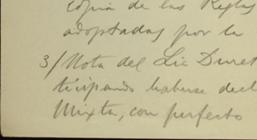 copia de las Reglas
adoptadas por la
3/ Nota del Lic Duret
ticipando haberse decl
Mixta, con perfecto